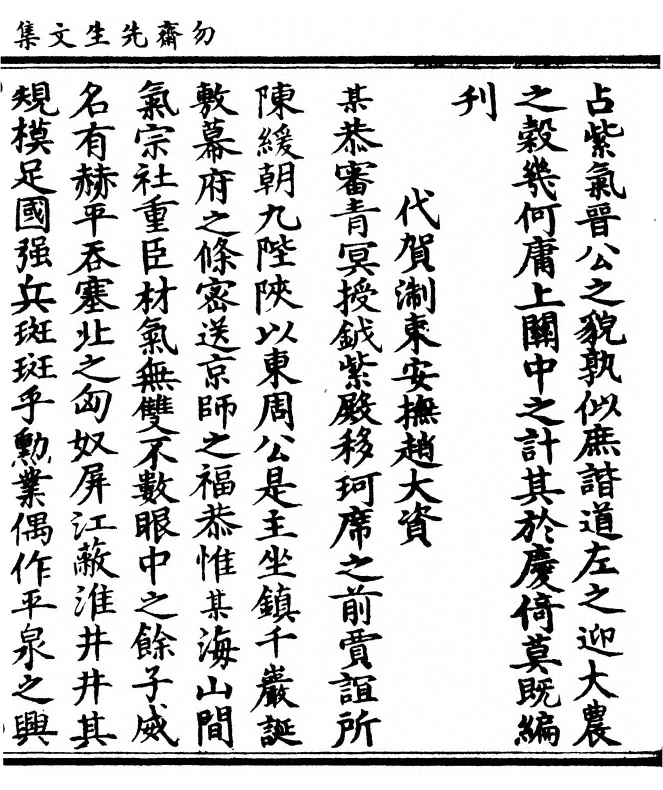 勿齋先生文集
占紫氣晉公之貌孰似庶諧道左之迎大農
之穀幾何庸上關中之計其於慶倚莫既編
刋
代賀淛東安撫趙大資
某恭審青冥授鉞紫殿移珂席之前賈誼所
陳緩朝九陛陝以東周公是主坐鎮千巖誕
敷幕府之條密送京師之福恭惟某海山間
氣宗社重臣材氣無雙不數眼中之餘子威
名有赫平吞塞北之匈奴屏江蔽淮井井其
規模足國强兵斑斑乎勳業偶作平泉之興